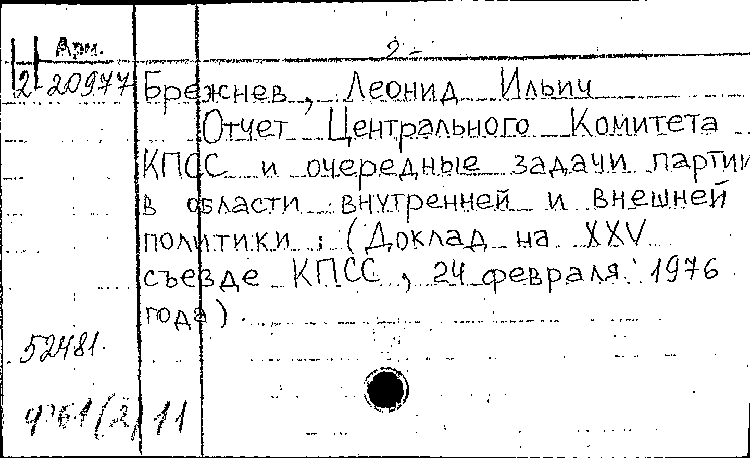 Арм. 2-
2-20977 Брежнев, Леонид Ильич
Отчет Центрального Комитета
КПСС и очередные задачи партии
в области внутренней и внешней
политики: (Доклад на XXV
съезде КПСС, 24 февраля 1976
года).
52481.
11